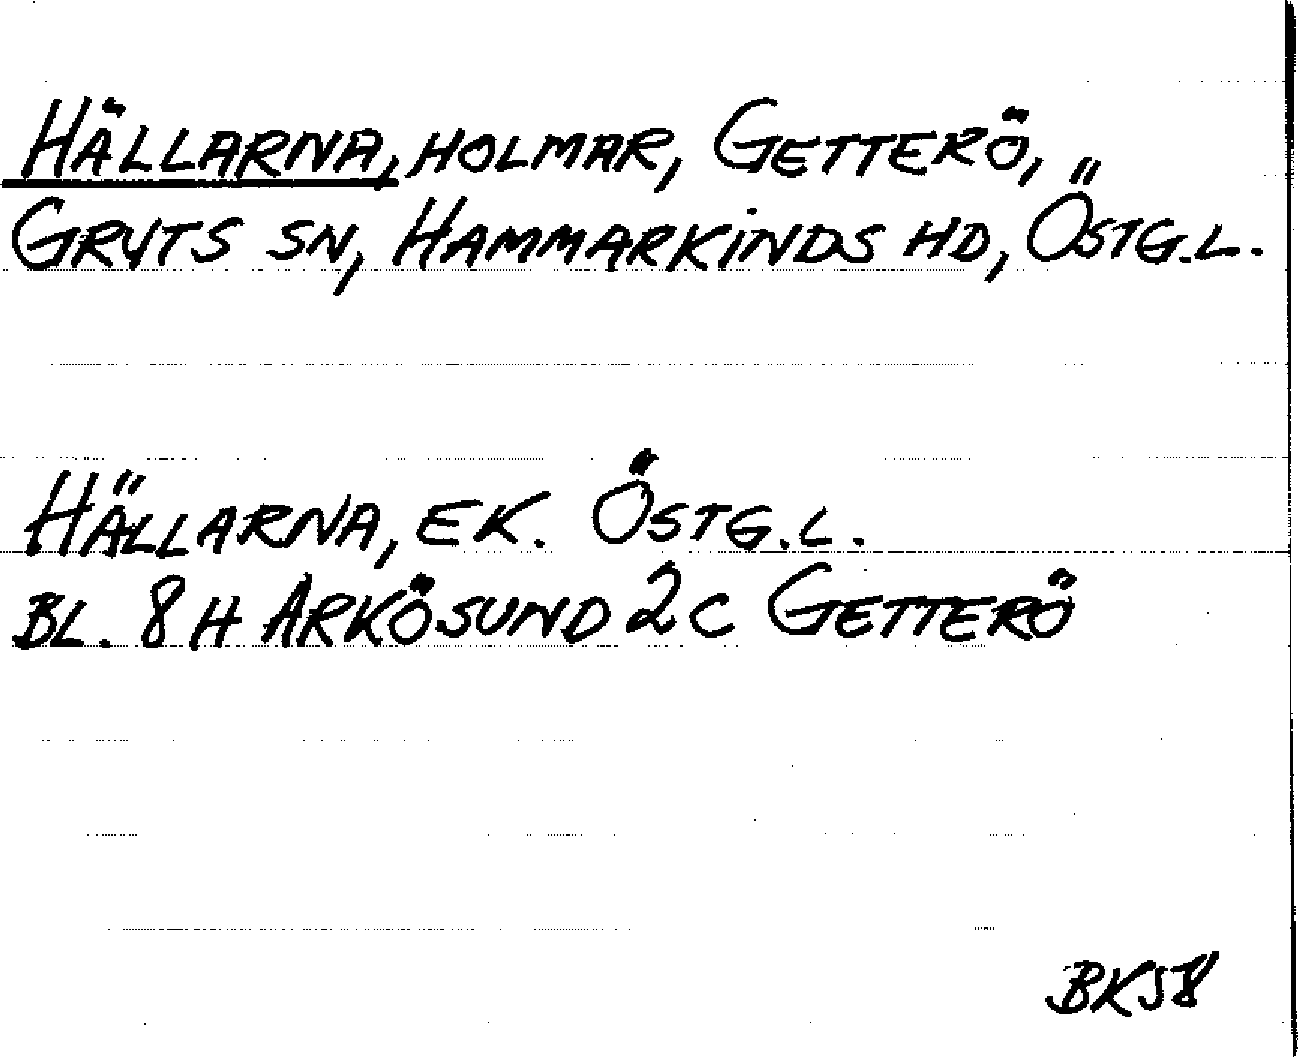 HÄLLARNA, HOLMAR, GETTERÖ,
GRYTS SN, HAMMARKINDS HD, ÖSTG.L.
HÄLLARNA, EK. ÖSTG.L.
BL. 8 H ARKÖSUND 2 C GETTERÖ